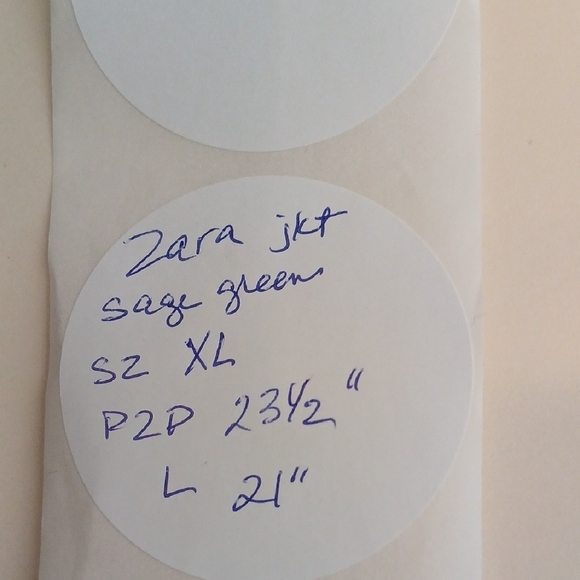 Zara jkt
sage green
SZ XL
P2P 23 1/2"
L 21"